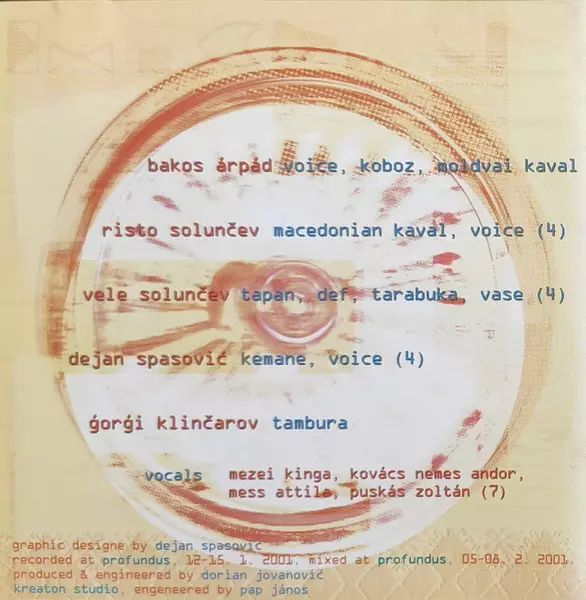 bakos árpád voice, koboz, moldvai kaval
risto solunčev macedonian kaval, voice (4)
vele solunčev tapan, def, tarabuka, vase (4)
dejan spasović kemane, voice (4)
ģorģi klinčarov tambura
vocals mezei kinga, kovács nemes andor,
mess attila, puskás zoltán (7)
graphic designe by dejan spasović
recorded at profundus, 12-15. 1. 2001. mixed at profundus, 05-08. 2. 2001.
produced & engineered by dorian jovanović
kreaton studio, engeneered by pap jános